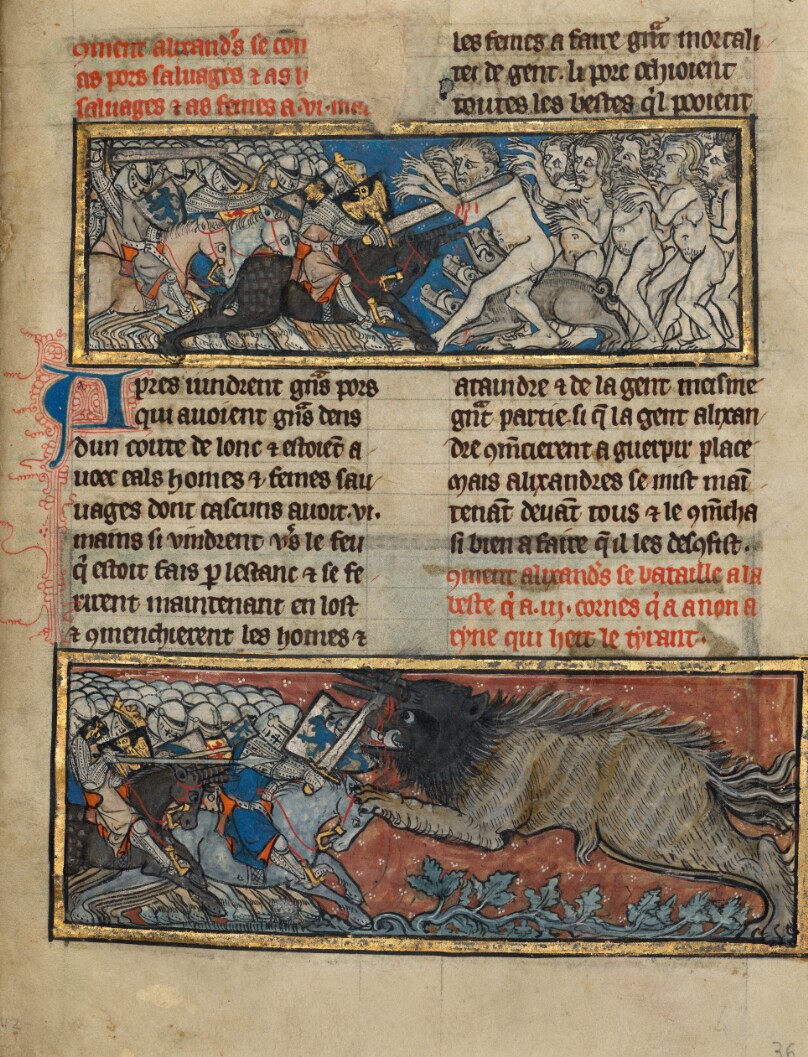 9ment alixand's se con
as pors saluages ⁊ as
saluages ⁊ as femes a .vi.
les femes a faire gͣnt mortali
tei de gent. li porc ochioient
toutes les bestes q̃l pooient
Apres uindrent gͣns pors
qui auoient gͣns dens
dun coute de lonc ⁊ estoiẽt a
uoec eals homes ⁊ femes sau
uages dont cascuns auoit .vi.
mains si vindrent v's le feu
q̃ estoit fais p lestanc ⁊ se fe
rirent maintenant en lost
⁊ 9menchierent les homes ⁊
ataindre ⁊ de la gent meisme
gͣnt partie si q̃ la gent alixan
dre 9mẽcierent a guerpir place
Mais alixandres se mist main
tenãt deuãt tous ⁊ le 9mẽcha
si bien a faire q̃ il les des9fist.
9ment alixand's se bataille a la
beste q̃ a .iij. cornes q̃ a a non a
tyne qui heit le tyrant.
36